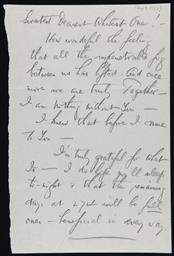 Sweetest Dearest Whitest One! -
How wonderful the feeling
that all the impenetrable fog
between us has lifted - and once
more we are truly Together -
I am Nothing without You -
I knew that before I came
to You -
I'm truly grateful for what
Is - I do hope you'll sleep
to-night & that the remaining
days at will be full
ones - beneficial in every way